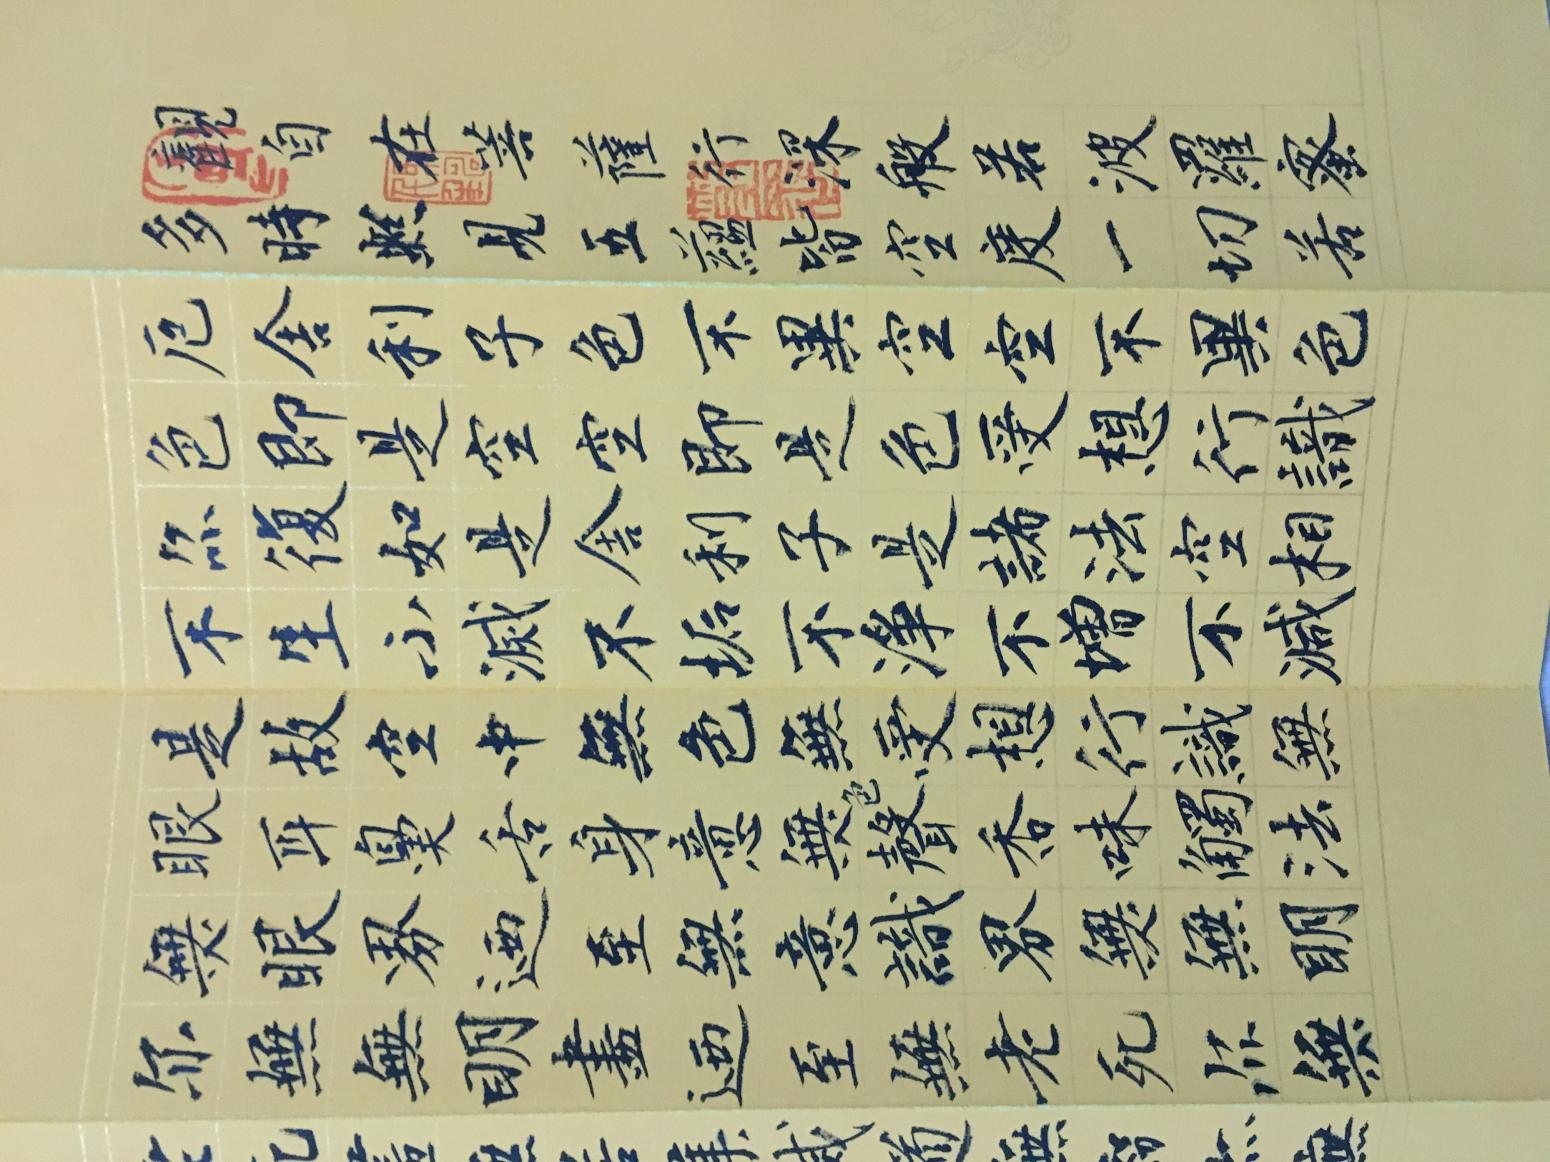 觀自在菩薩行深般若波羅蜜
多時照見五蘊皆空度一切苦
厄舍利子色不異空空不異色
色即是空空即是色受想行識
亦復如是舍利子是諸法空相
不生不滅不垢不淨不增不減
是故空中無色無受想行識無
眼耳鼻舌身意無色聲香味觸法
無眼界迺至無意識界無無明
亦無無明盡迺至無老死亦無